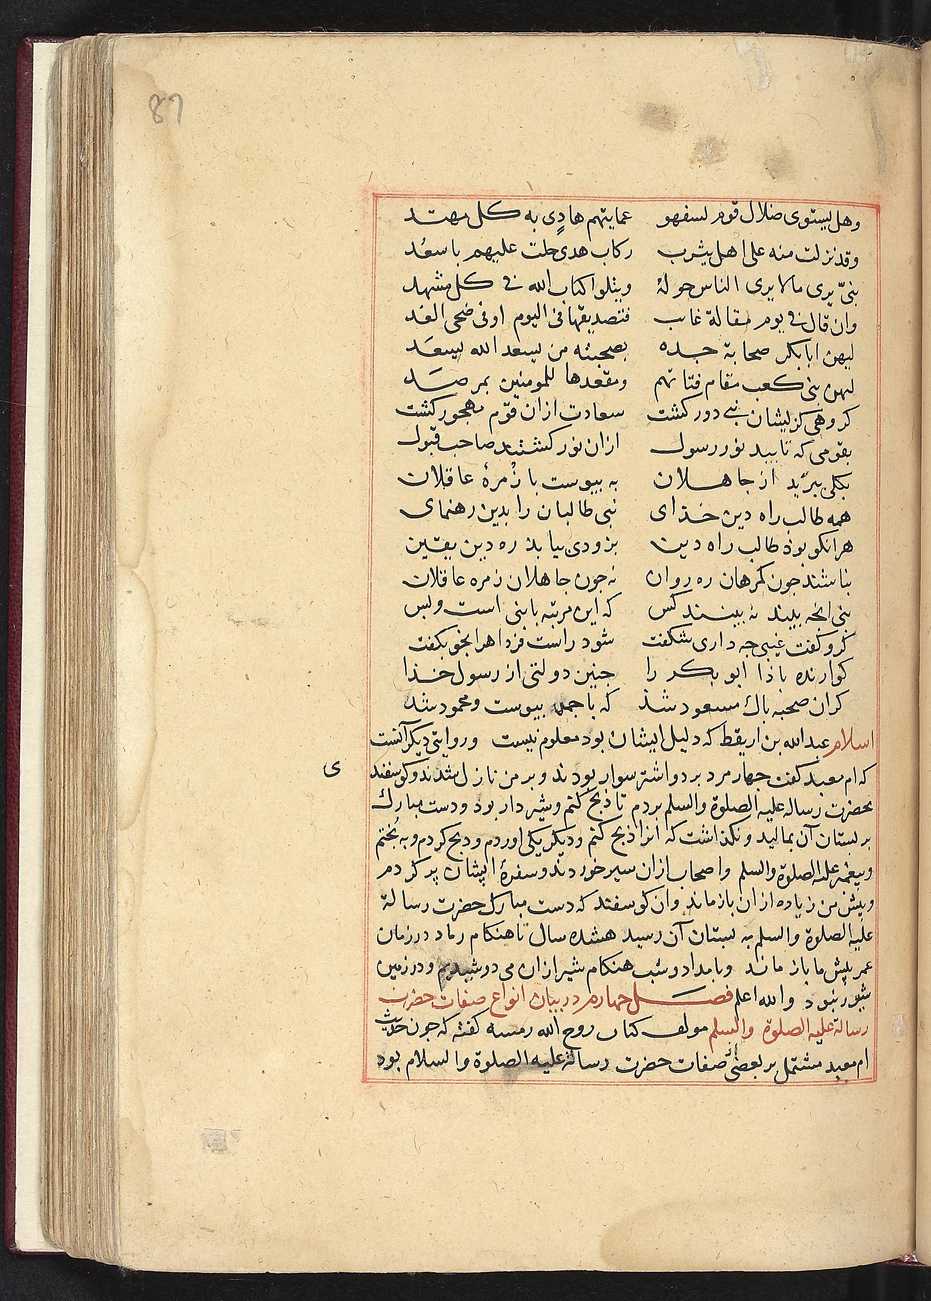 87
وهل یستوی ضلال قوم تسفهو عمایتهم هادٍی به کل مهتد
وقد نزلت منه علی اهل یثرب رکاب هدی حلت علیهم باسعُد
نبیّ یری مالا یری الناس حوله ویتلوا کتاب الله فی کل مشهد
وان قال فی یوم مقالة غاب فتصدیقها فی الیوم اوفی ضحی الغد
لیهن ابابکر صحابة جده بصحبته من یسعد الله یسعَد
لیهن بنی کعب مقام فتاتهم ومقعدها للمومنین بمرصَد
کروهی کزیشان نبی دور کشت سعادت ازان قوم مهجور کشت
بقومی که تابید نور رسول ازان نور کشتند صاحب قبول
بکلی ببرّید از جاهلان به بیوست با زُمرهٔ عاقلان
همه طالب راه دین خذای نبی طالبان را بدین رهنمای
هرانکو بوذ طالب راه دین بزودی بیابذ ره دین یقین
نباشند جون کمرهان ره روان نه جون جاهلان زمره عاقلان
نبی انجه بیند نه بینند کس که این مرتبه با نبی است وبس
کرو کفت غیبی جه داری شکفت شود راست فردا هر انجو بکفت
کوارنده باذا ابو بکر را جنین دولتی از رسول خذا
کزان صحبه باک مسعود شذ که با جمله بیوست ومحمود شد
اسلام عبدالله بن اریقط که دلیل ایشان بود معلوم نیست وروایتی دیکر آنست
که ام معبد کفت جهار مرد بر دو اشتر سوار بودند وبر من نازل شدند وکوسفند
ی
بحضرت رسالة علیه الصلوة والسلم بردم تا ذبح کنم وشیردار بود ودست مبارک
بر بستان آن بمالید ونکذاشت که انرا ذبح کنم ودیکر یکی اوردم وذبح کردم وبه بُختم
وبیغمبر علیه الصلوة والسلم واصحاب ازان سیر خوردند وسفرهٔ ایشان پر کردم
وبیش من زیاده از ان باز ماند وان کوسفند که دست مبارک حضرت رسالة
علیه الصلوة والسلم به بستان آن رسید هشده سال تا هنکام رماد در زمان
عمر بیش ما باز ماند وبامداد وشب هنکام شیر ازان می دوشیدیم ودر زمین
شیر نبود والله اعلم فصل جهارم در بیان انواع صفات حضرت
رسالة علیه الصلوة والسلم مولف کتاب روح الله رمسه کفته که جون حدیث
ام معبد مشتمل بر بعضی از صفات حضرت رسالة علیه الصلوة والسلام بود